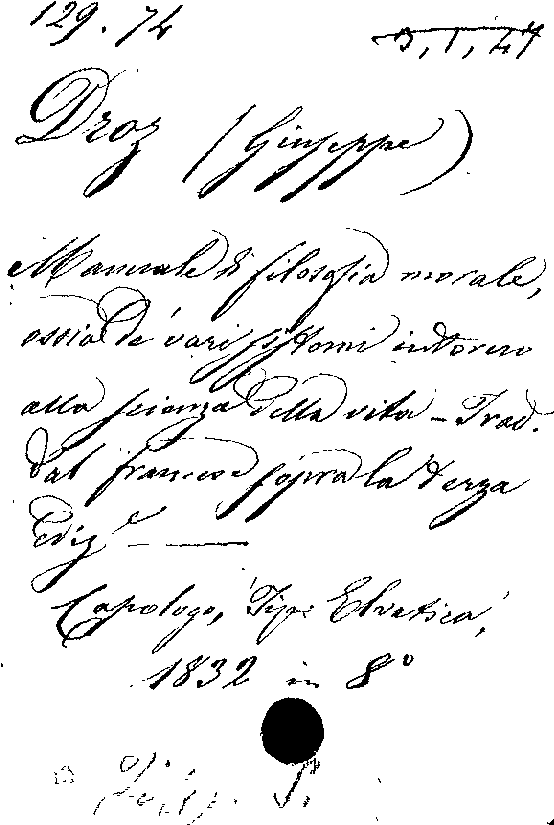 129.74
3, 1, 47
Droz (Giuseppe)
Manuale di filosofia morale,
ossia de' varj sistemi intorno
alla scienza della vita - Trad.
dal francese sopra la terza
ediz.e —
Capolago, Tip: Elvetica,
1832 in 8º